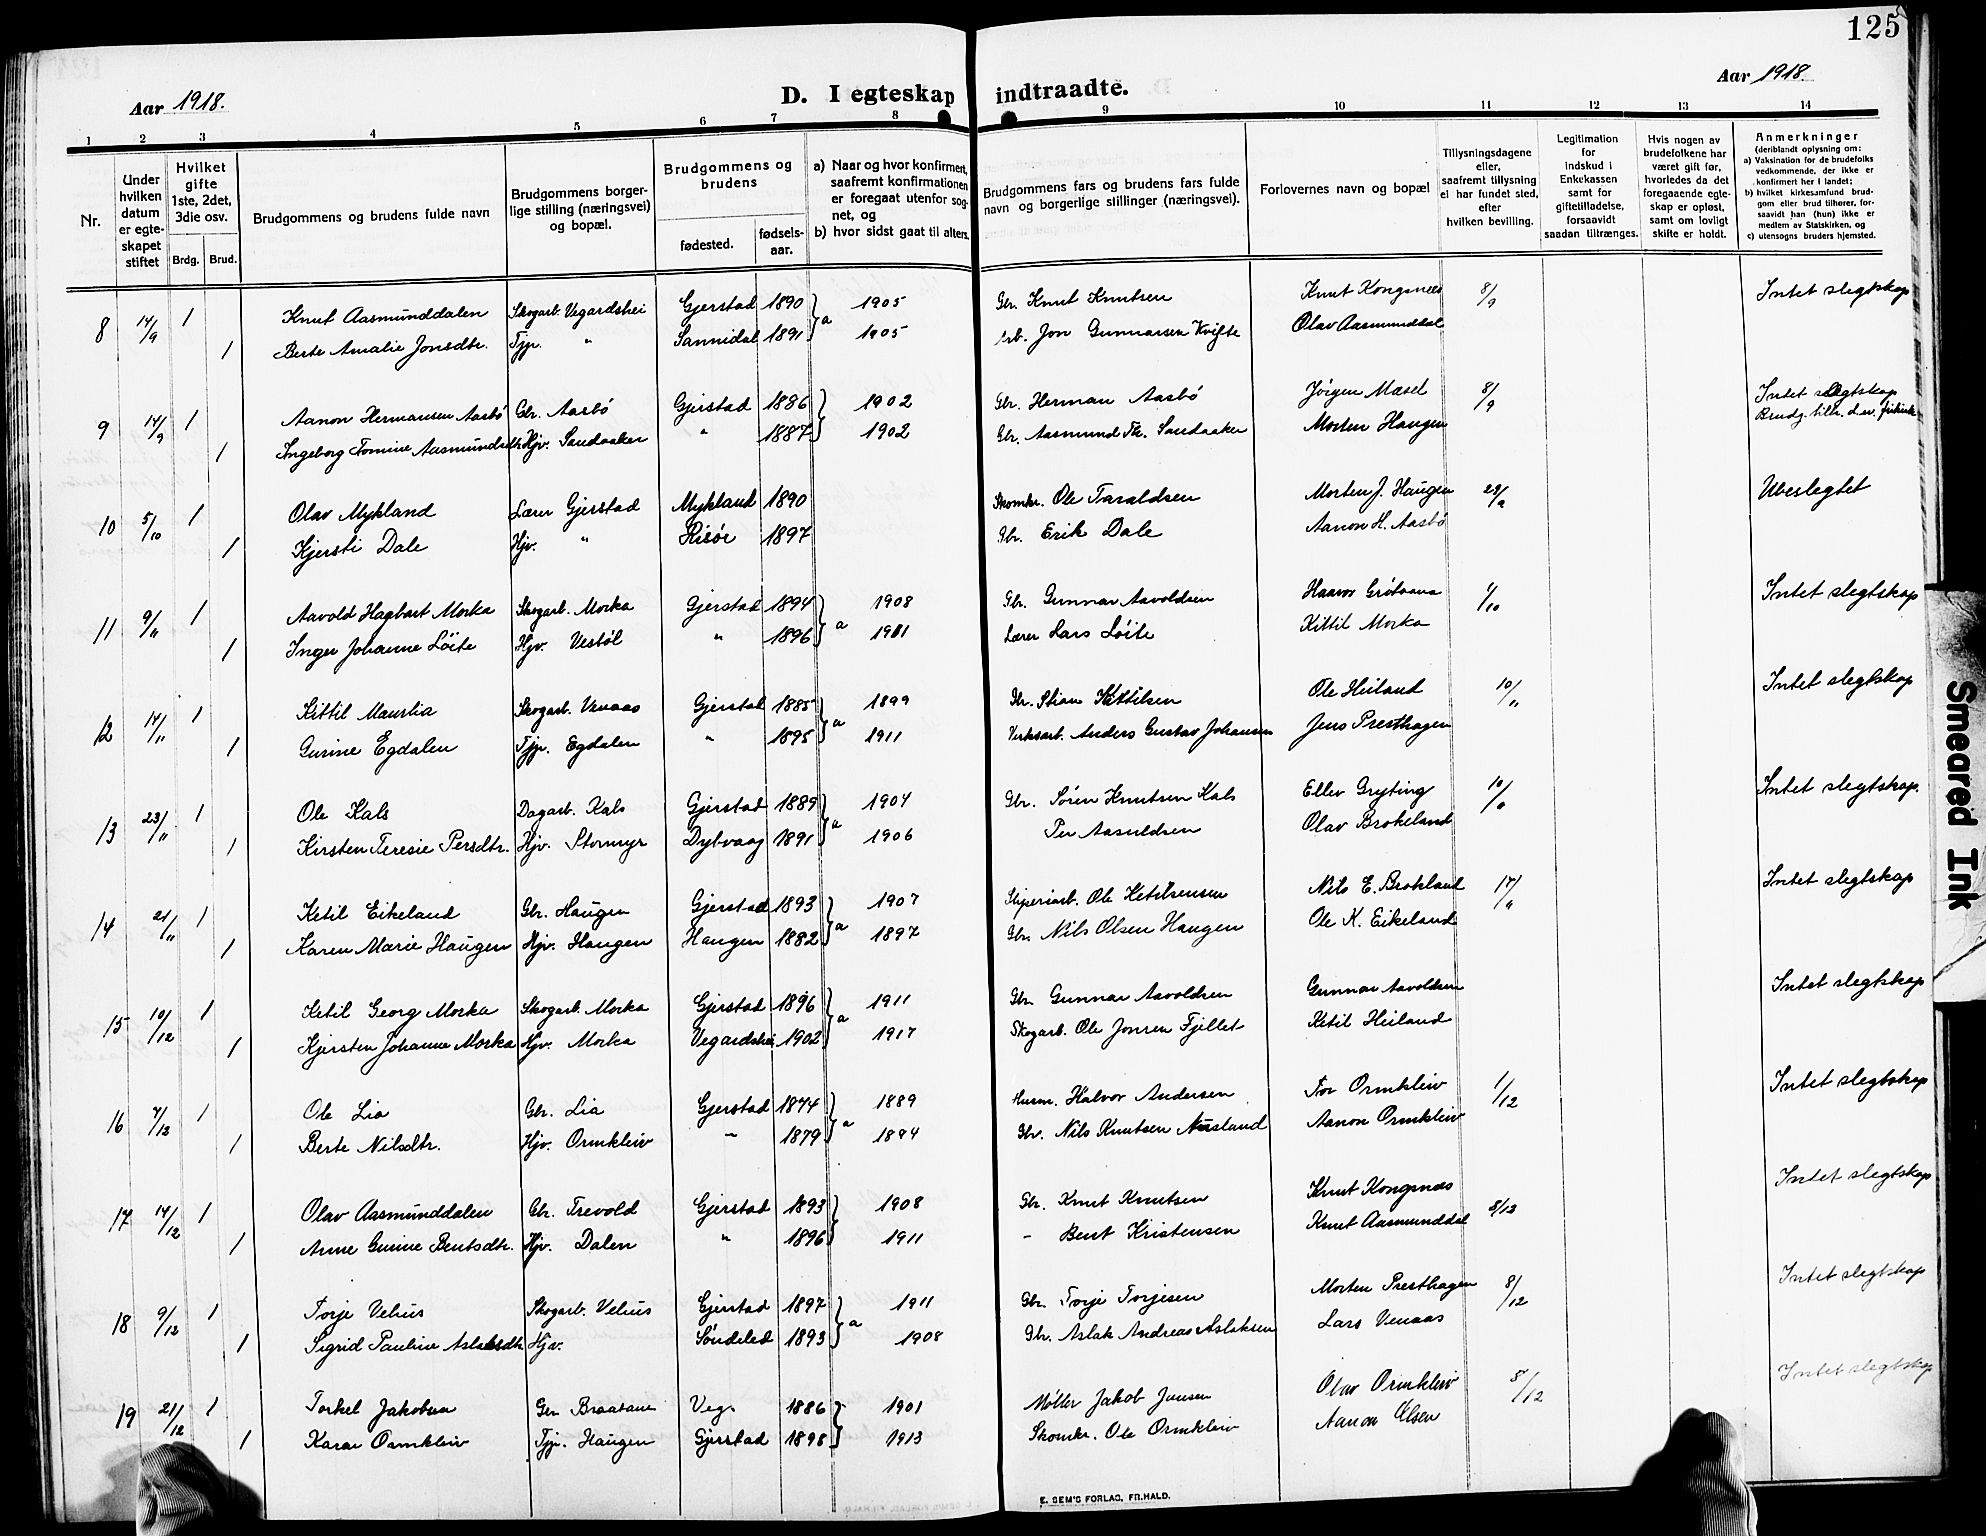 125
Aar 1918.
D. I egteskap indtraadte.
Aar 1918.
1 2 3 4 5 6 7 8 9 10 11 12 13 14
Nr.
Under hvilken datum er egteskapet stiftet
Hvilket gifte 1ste, 2det, 3die osv.
Brdg. Brud.
Brudgommens og brudens fulde navn
Brudgommens borgerlige stilling (næringsvei) og bopæl.
Brudgommens og brudens
fødested. fødselsaar.
a) Naar og hvor konfirmert, saafremt konfirmationen er foregaat utenfor sognet, og
b) hvor sidst gaat til alters.
Brudgommens fars og brudens fars fulde navn og borgerlige stillinger (næringsvei).
Forlovernes navn og bopæl
Tillysningsdagene eller, saafremt tillysning ei har fundet sted, efter hvilken bevilling.
Legitimation for Indskud i Enkekassen samt for giftetilladelse, forsaavidt saadan tiltrænges.
Hvis nogen av brudefolkene har været gift før, hvorledes da det foregaaende egteskap er opløst, samt om lovligt skifte er holdt.
Anmerkninger (deriblandt oplysning om:
a) Vaksination for de brudefolks vedkommende, der ikke er konfirmert her i landet;
b) hvilket kirkesamfund brudgom eller brud tilhører, forsaavidt han (hun) ikke er medlem av Statskirken, og
c) utensogns bruders hjemsted.
8 14/9 1 Knut Aasmunddalen Skogarb. Vegardshei Gjerstad 1890 a 1905 Gbr. Knut Knutsen Knut Kongsnæs 8/9 Intet slegtskap
1 Berte Amalie Jonsdtr. Tjp. " Sannidal 1891 1905 Jon Gunnarsen Kvifte Olav Aasmunddal
9 14/9 1 Aanon Hermansen Aasbö Gbr. Aasbö Gjerstad 1886 1902 Gbr. Herman Aasbö Jörgen Masel 8/9 Intet slegtskap
1 Ingeborg Tomine Aasmundsdtr Hjv. Sandaaker " 1887 1902 Gbr. Aasmund Th. Sandaaker Morten Haugen Brudg. tilh. d. ev.
10 5/10 1 Olav Mykland Lærer Gjerstad Mykland 1890 Skomkr. Ole Taraldsen Morten J. Haugen Ubeslegtet
1 Kjersti Dale Hjv. " Risör 1897 Gbr. Erik Dale Aanon H. Aasbö
11 9/11 1 Aavold Hagbart Morka Skogarb. Morka Gjerstad 1894 a 1908 Gbr. Gunnar Aavoldsen Haavor Grötvana Intet slegtskap
1 Inger Johanne Löite Hjv. Vestöl " 1896 1911 Lærer Lars Löite Kittil Morka
12 14/11 1 Kittil Maurlia Skogarb. Venaas Gjerstad 1885 a 1899 Gbr. Stian Kittilsen Ole Heiland 10/11 Intet slegtskap
1 Gurine Egdalen Tjp. Egdalen " 1895 1911 Verksarb. Anders Gustav Johansen Jens Presthagen
13 23/11 1 Ole Kals Dagarb. Kals Gjerstad 1889 a 1904 Gbr. Sören Knutsen Kals Ellev Gryting Intet slegtskap.
1 Kirsten Teresie Persdtr. Hjv. Stormyr Dybvaag 1891 1906 Per Aasuldsen Olav Brokeland
14 21/11 1 Ketil Eikeland Gbr. Haugen Gjerstad 1893 a 1907 Ole Ketilsensen Nils E. Brokland 17/11 Intet slegtskap
1 Karen Marie Haugen Hjv. Haugen Haugen 1882 1897 Gbr. Nils Olsen Haugen Ole K. Eikeland
15 10/12 1 Ketil Georg Morka Skogarb. Morka Gjerstad 1896 a 1911 Gbr. Gunnar Aavoldsen Gunnar Aavoldsen Intet slegtskap
1 Kjersten Johanne Morka Hjv. Morka Vegardshei 1902 1917 Skogarb. Ole Jonsen Fjellet Ketil Heiland
16 7/12 1 Ole Lia Gbr. Lia Gjerstad 1874 a 1889 Husm. Halvor Andersen Tor Ormkleiv 1/12 Intet slegtskap
1 Berte Nilsdtr. Hjv. Ormkleiv " 1879 1894 Gbr. Nils Knutsen Aanon Ormkleiv
17 14/12 1 Olav Aasmunddalen Gbr. Trevold Gjerstad 1893 1908 Gbr. Knut Knutsen Knut Kongsnæs 8/12 Intet slegtskap
1 Anne Gurine Bentsdtr. Hjv. Dalen " 1896 1911 - Bent Kristensen Knut Aasmunddal
18 9/12 1 Torje Velius Skogarb. Velius Gjerstad 1897 a 1911 Gbr. Torje Torjesen Morten Presthagen 8/12 Intet slegtskap
1 Sigrid Pauline Aslaksdtr Hjv. Söndeled 1893 1908 Gbr. Aslak Andreas Aslaksen Lars Venaas
19 21/12 1 Torkel Jakobsen Braatane Veg. 1886 1901 Møller Jakob Jensen Olav Ormkleiv 8/12 Intet slegtskap
1 Karen Ormkleiv Tjp. Haugen Gjerstad 1898 1913 Skomkr. Ole Ormkleiv Aanon Olsen
E. SEM'S FORLAG, FR.HALD.
Smeared Ink